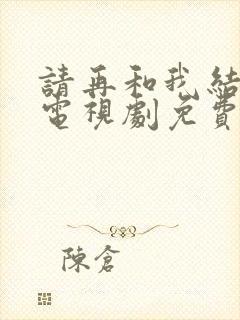 請再和我結
電視劇免費
陳倉